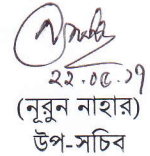 ২২.০৫.১৭
(নূরুন নাহার)
উপ-সচিব